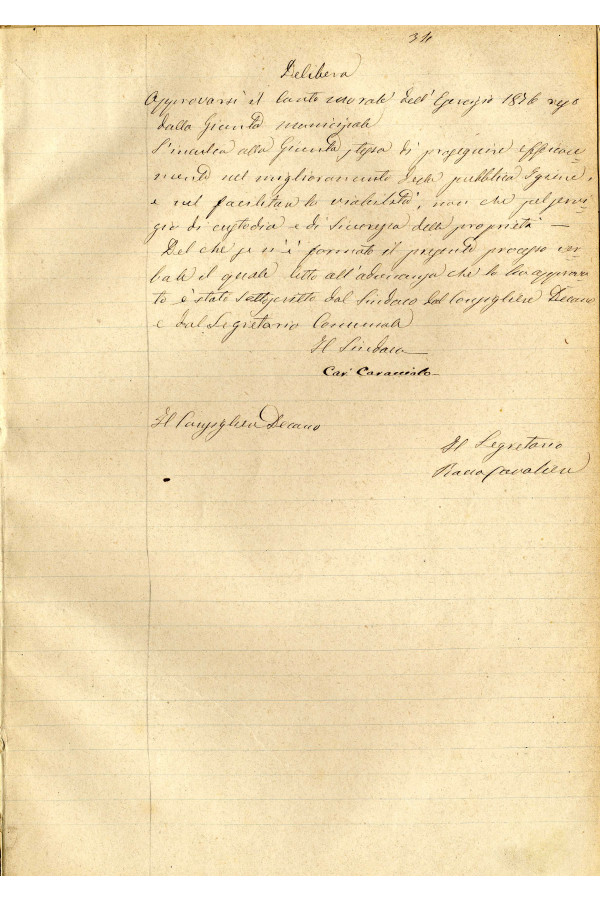 34
Delibera
Approvarsi il Conto morale dell'Esercizio 1876 reso
dalla Giunta Municipale
S'inculca alla Giunta stessa di proseguire efficace-
mente nel miglioramento della pubblica Igiene,
e nel facilitar la viabilità, non che pel servi-
zio di custodia e di Sicurezza della proprietà —
Del che se n'è formato il presente processo ver-
bale il quale letto all'adunanza che lo ha approva-
to è stato sottoscritto dal Sindaco dal Consigliere Decano
e dal Segretario Comunale
Il Sindaco
Car. Caracciolo
Il Consigliere Decano
Il Segretario
Cavalieri